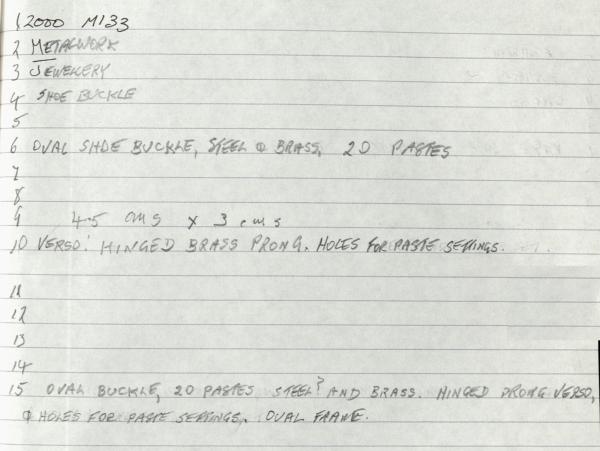 1 2000 M133
2 METALWORK
3 JEWELLERY
4 SHOE BUCKLE
5
6 OVAL SHOE BUCKLE, STEEL & BRASS, 20 PASTES
7
8
9 4.5 cms x 3 cms
10 VERSO: HINGED BRASS PRONG. HOLES FOR PASTE SETTINGS.
11
12
13
14
15 OVAL BUCKLE, 20 PASTES STEEL? AND BRASS. HINGED PRONG VERSO,
& HOLES FOR PASTE SETTINGS. OVAL FRAME.